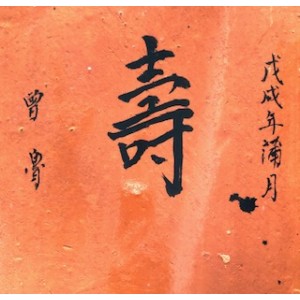 戊戌年蒲月
壽
曾